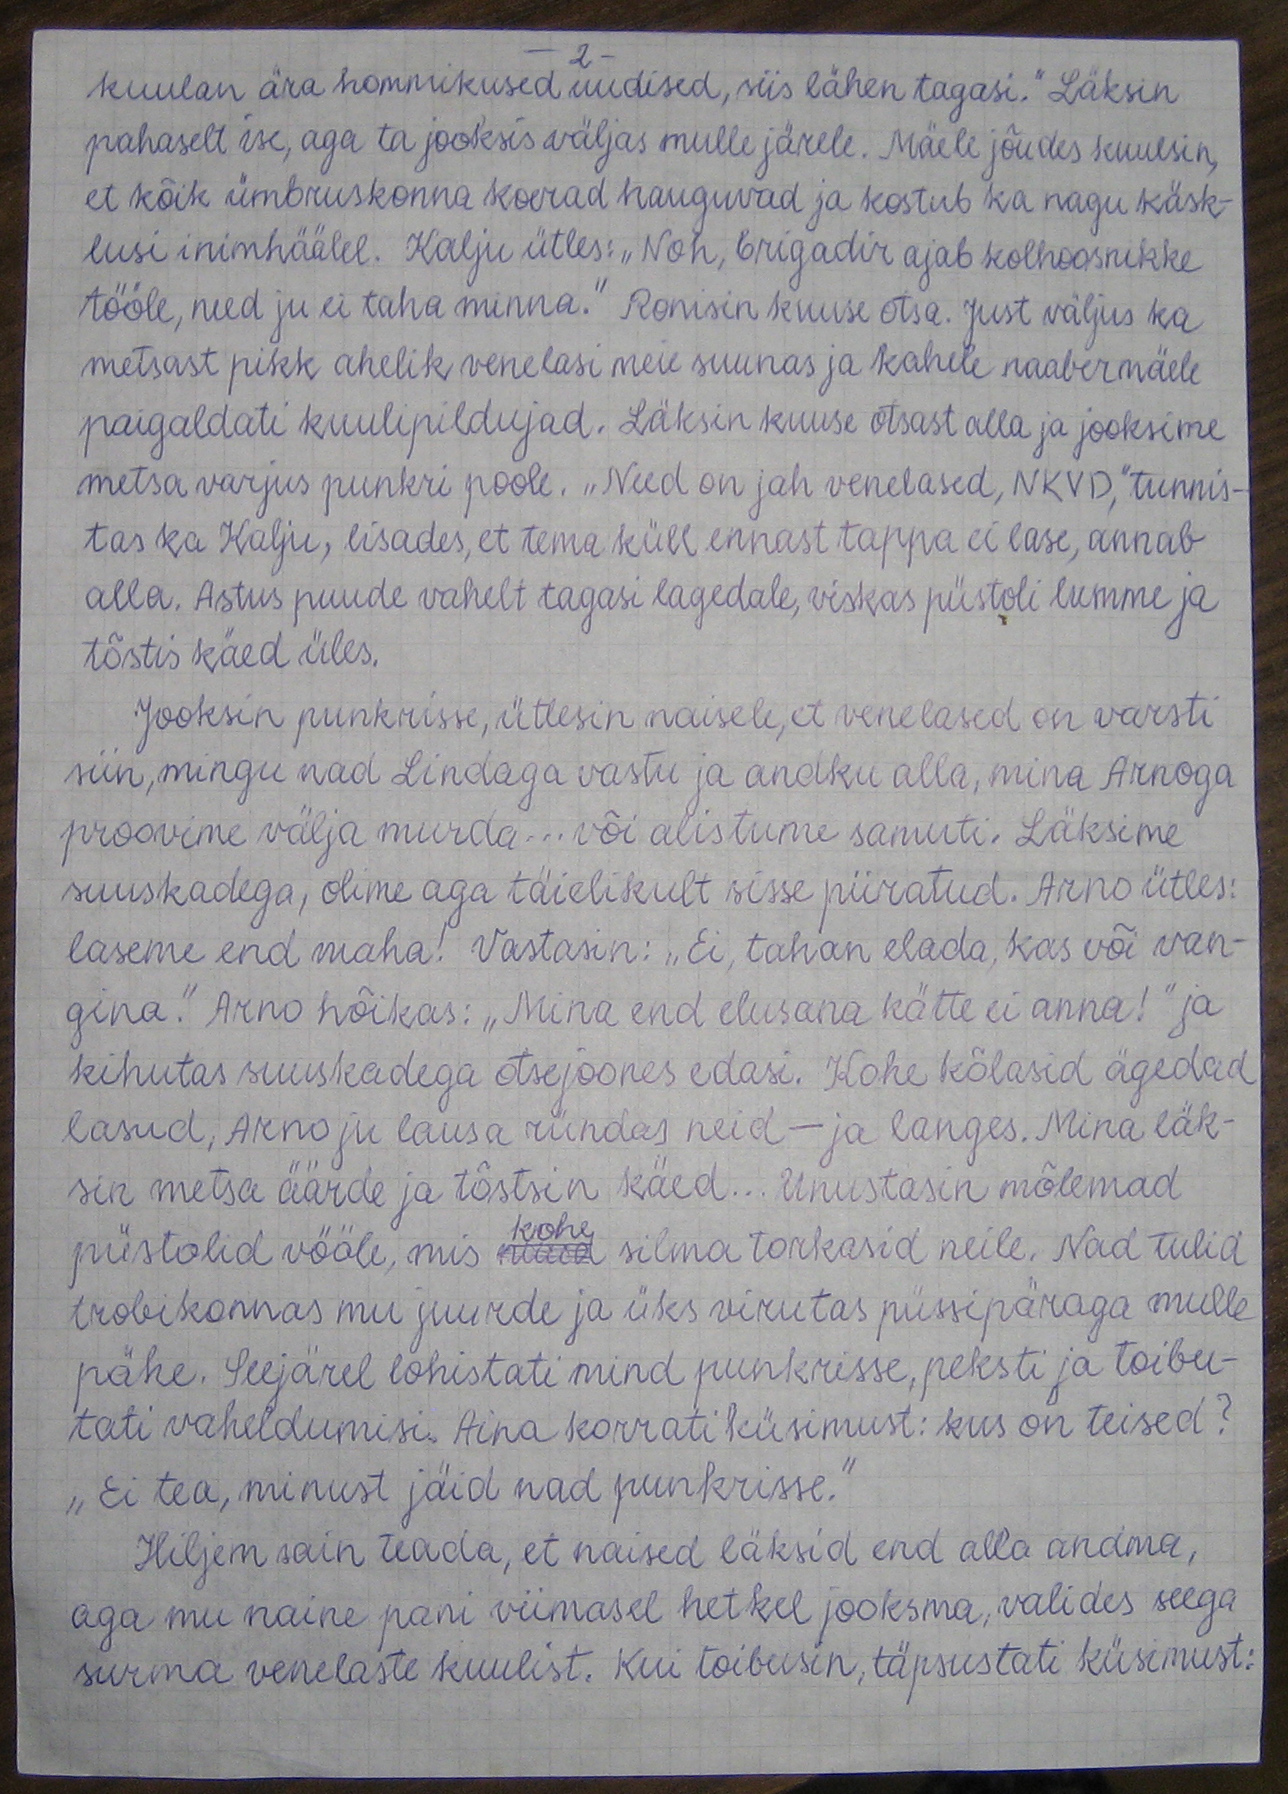 - 2 -
kuulan ära hommikused uudised, siis lähen tagasi." Läksin
pahaselt ise, aga ta jooksis väljas mulle järele. Mäele jõudes kuulsin,
et kõik ümbruskonna koerad hauguvad ja kostub ka nagu käsk-
lusi inimhäälel. Kalju ütles: „Noh, brigadir ajab kolhoosnikke
tööle, need ju ei taha minna." Ronisin kuuse otsa. Just väljus ka
metsast pikk ahelik venelasi meie suunas ja kahele naabermäele
paigaldati kuulipildujad. Läksin kuuse otsast alla ja jooksime
metsa varjus punkri poole. „Need on jah venelased, NKVD," tunnis-
tas ka Kalju, lisades, et tema küll ennast tappa ei lase, annab
alla. Astus puude vahelt tagasi lagedale, viskas püstoli lumme ja
tõstis käed üles.
Jooksin punkrisse, ütlesin naisele, et venelased on varsti
siin, mingu nad Lindaga vastu ja andku alla, mina Arnoga
proovime välja murda... või alistume samuti. Läksime
suuskadega, olime aga täielikult sisse piiratud. Arno ütles:
laseme end maha! Vastasin: „Ei, tahan elada, kas või van-
gina." Arno hõikas: „Mina end elusana kätte ei anna!" ja
kihutas suuskadega otsejoones edasi. Kohe kõlasid ägedad
lasud, Arno ju lausa ründas neid — ja langes. Mina läk-
sin metsa äärde ja tõstsin käed... Unustasin mõlemad
püstolid vööle, mis kohe silma torkasid neile. Nad tulid
trobikonnas mu juurde ja üks virutas püssipäraga mulle
pähe. Seejärel lohistati mind punkrisse, peksti ja toibu-
tati vaheldumisi. Aina korrati küsimust: kus on teised?
„Ei tea, minust jäid nad punkrisse."
Hiljem sain teada, et naised läksid end alla andma,
aga mu naine pani viimasel hetkel jooksma, valides seega
surma venelaste kuulist. Kui toibusin, täpsustati küsimust: